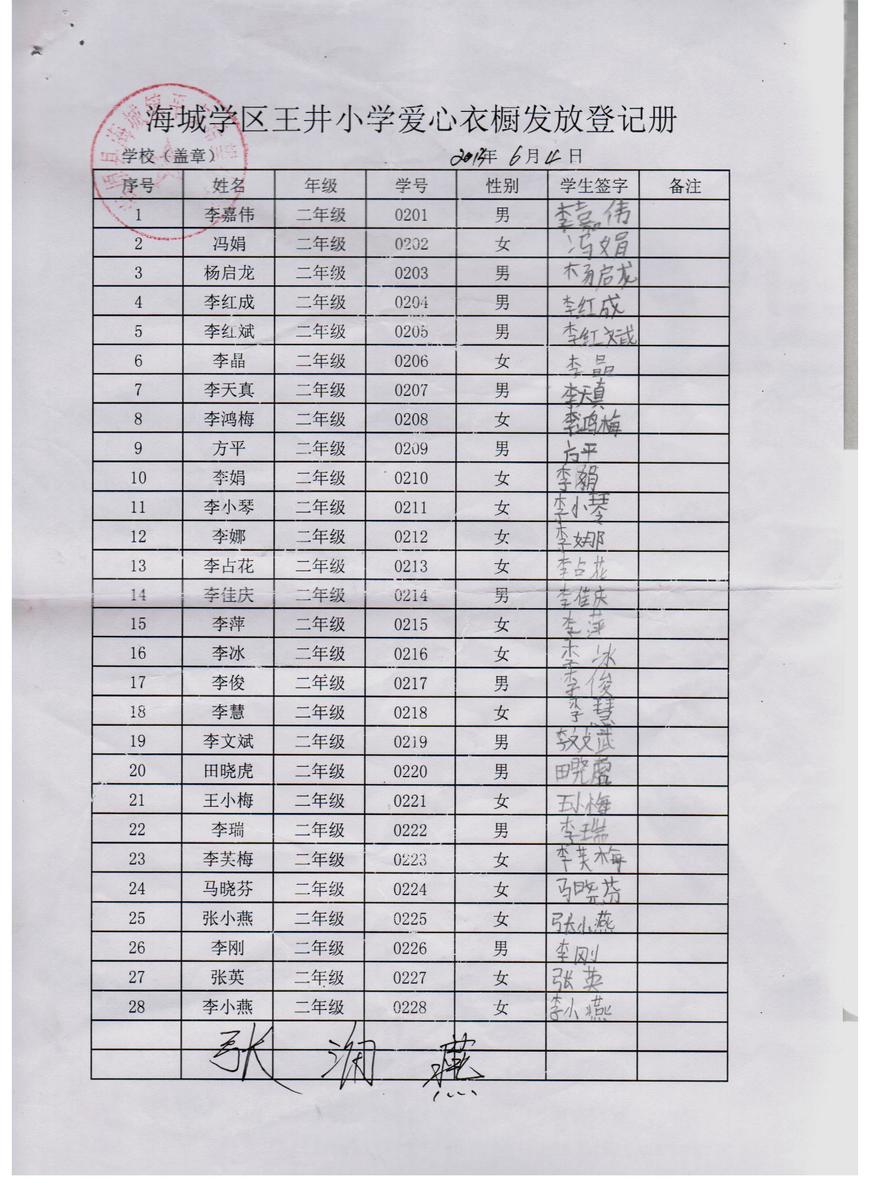 海城学区王井小学爱心衣橱发放登记册
学校（盖章） 年 6月 日
序号 姓名 年级 学号 性别 学生签字 备注
1 李嘉伟 二年级 0201 男 李嘉伟
2 冯娟 二年级 0202 女 冯娟
3 杨启龙 二年级 0203 男 杨启龙
4 李红成 二年级 0204 男 李红成
5 李红斌 二年级 0205 男 李红斌
6 李晶 二年级 0206 女 李晶
7 李天真 二年级 0207 男 李天真
8 李鸿梅 二年级 0208 女 李鸿梅
9 方平 二年级 0209 男 方平
10 李娟 二年级 0210 女 李娟
11 李小琴 二年级 0211 女 李小琴
12 李娜 二年级 0212 女 李娜
13 李占花 二年级 0213 女 李占花
14 李佳庆 二年级 0214 男 李佳庆
15 李萍 二年级 0215 女 李萍
16 李冰 二年级 0216 女 李冰
17 李俊 二年级 0217 男 李俊
18 李慧 二年级 0218 女 李慧
19 李文斌 二年级 0219 男 李文斌
20 田晓虎 二年级 0220 男 田晓虎
21 王小梅 二年级 0221 女 王小梅
22 李瑞 二年级 0222 男 李瑞
23 李芙梅 二年级 0223 女 李芙梅
24 马晓芬 二年级 0224 女 马晓芬
25 张小燕 二年级 0225 女 张小燕
26 李刚 二年级 0226 男 李刚
27 张英 二年级 0227 女 张英
28 李小燕 二年级 0228 女 李小燕
张 燕